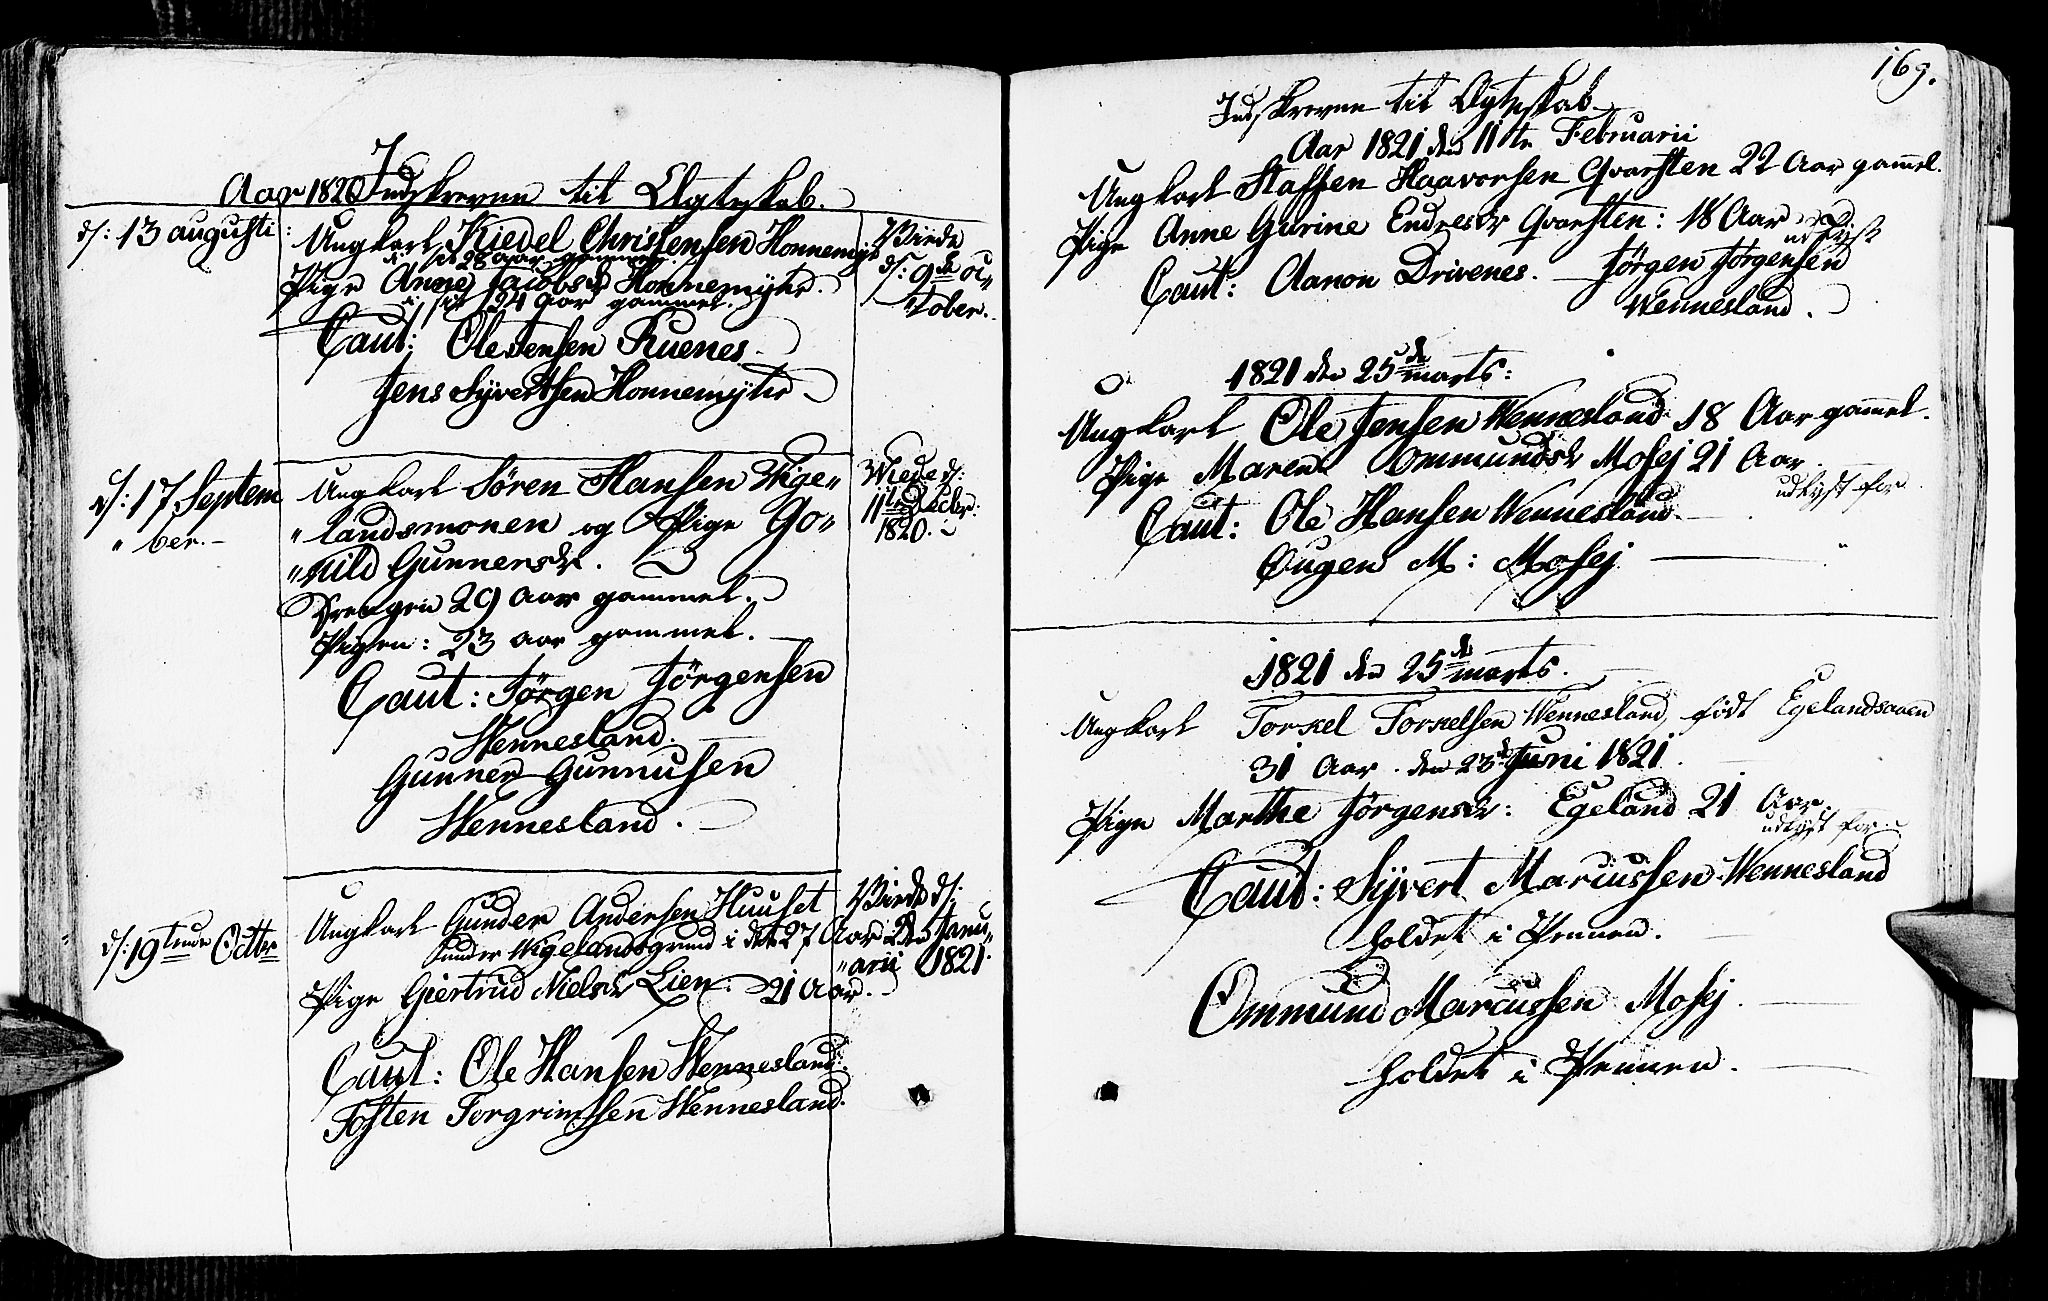 Aar 1820 Indskrevne til Ægteskab.
d: 13 augusti:
Ungkarl Kiedel Christensen Honnemyr
i sit 28 aar gammel.
Pige Anne Jacobsdr Honnemyhr.
i sit 24 aar gammel.
Caut: Ole Jensen Ruenes
Jens Syvertsen Honnemyhr
Viede
d: 9de Oc-
tober.
d: 17 Septem
" ber.
Ungkarl Søren Hansen Wige"
"landsmonen og Pige Go"
"nild Gunnersdr.
Drengen 29 aar gammel.
Pigen: 23 aar gammel.
Caut: Jørgen Jørgensen
Wennesland.
Gunner Gunnusen
Wennesland.
Wiede d:
11te Decbr:
1820.
d: 19tende Octbr
Ungkarl Gunder Andersen Huuset
under Wigelandsgrund i det 27 Aar
Pige Giertrud Nielsdr Lien. 21 Aar.
Caut: Ole Hansen Wennesland:
Tosten Torgrimsen Wennesland.
Viede d:
2den Janu"
"arii 1821.
169.
Indskrevne til Ægteskab
Aar 1821 den 11te Februarii
Ungkarl Staffen Haavorsen Qvarsten 22 Aar gammel.
Pige Anne Gurine Endresdr Qvarsten: 18 Aar
udlyst
Caut: Aanon Drivenes. Jørgen Jørgensen
Wennesland.
1821 den 25de marts:
Ungkarl Ole Jensen Wennesland 18 Aar gammel.
Pige Maren Ommundsdr Mosej 21 Aar
udlyst for
Caut: Ole Hansen Wennesland.
Ougen M: Mosej
1821 den 25de marts.
Ungkarl Torkel Torkelsen Wennesland, født Egelandsaaen
31 Aar. den 23de Juni 1821.
Pige Marthe Jørgensdr: Egeland 21 Aar.
udlyst for
Caut: Syvert Marcussen Wennesland
holdet i Pennen.
Ommund Marcussen Mosej.
holdet i Pennen.